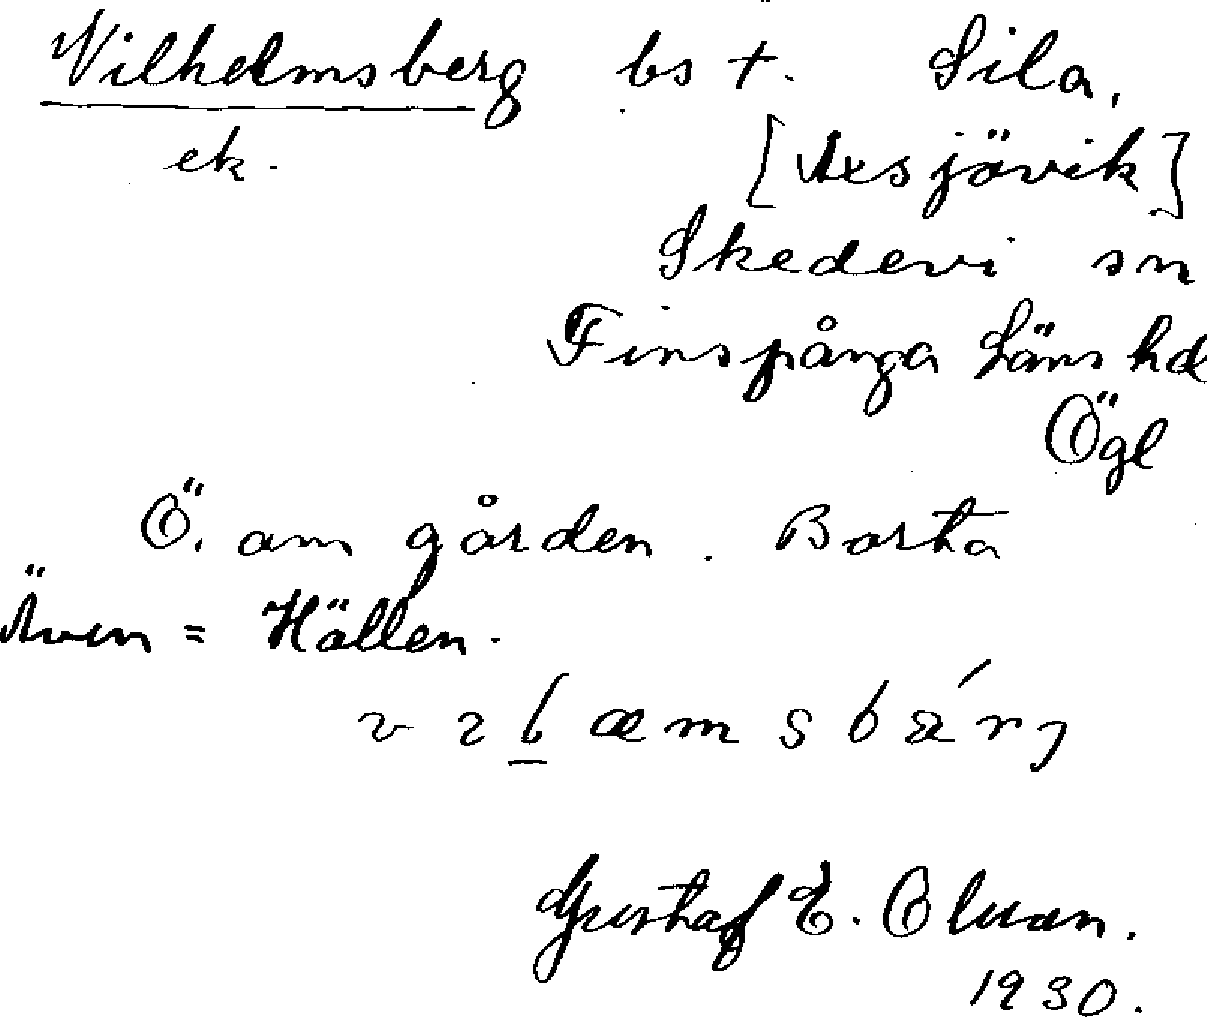 Vilhelmsberg bs †. Sila,
ek. [Axsjövik]
Skedevi sn
Finspånga läns hd
Ögl
Ö. om gården. Borta
Även = Hällen.
Gustaf E. Oluan.
1930.